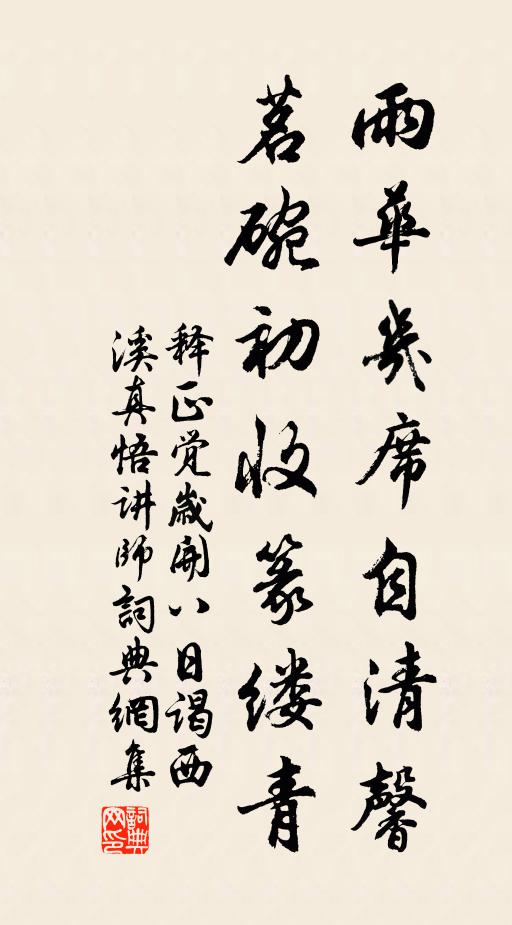 雨華几席自清馨
茗碗初收篆缕青
释正觉岁开八日谒西
溪真悟讲师词典網集
詞典網印